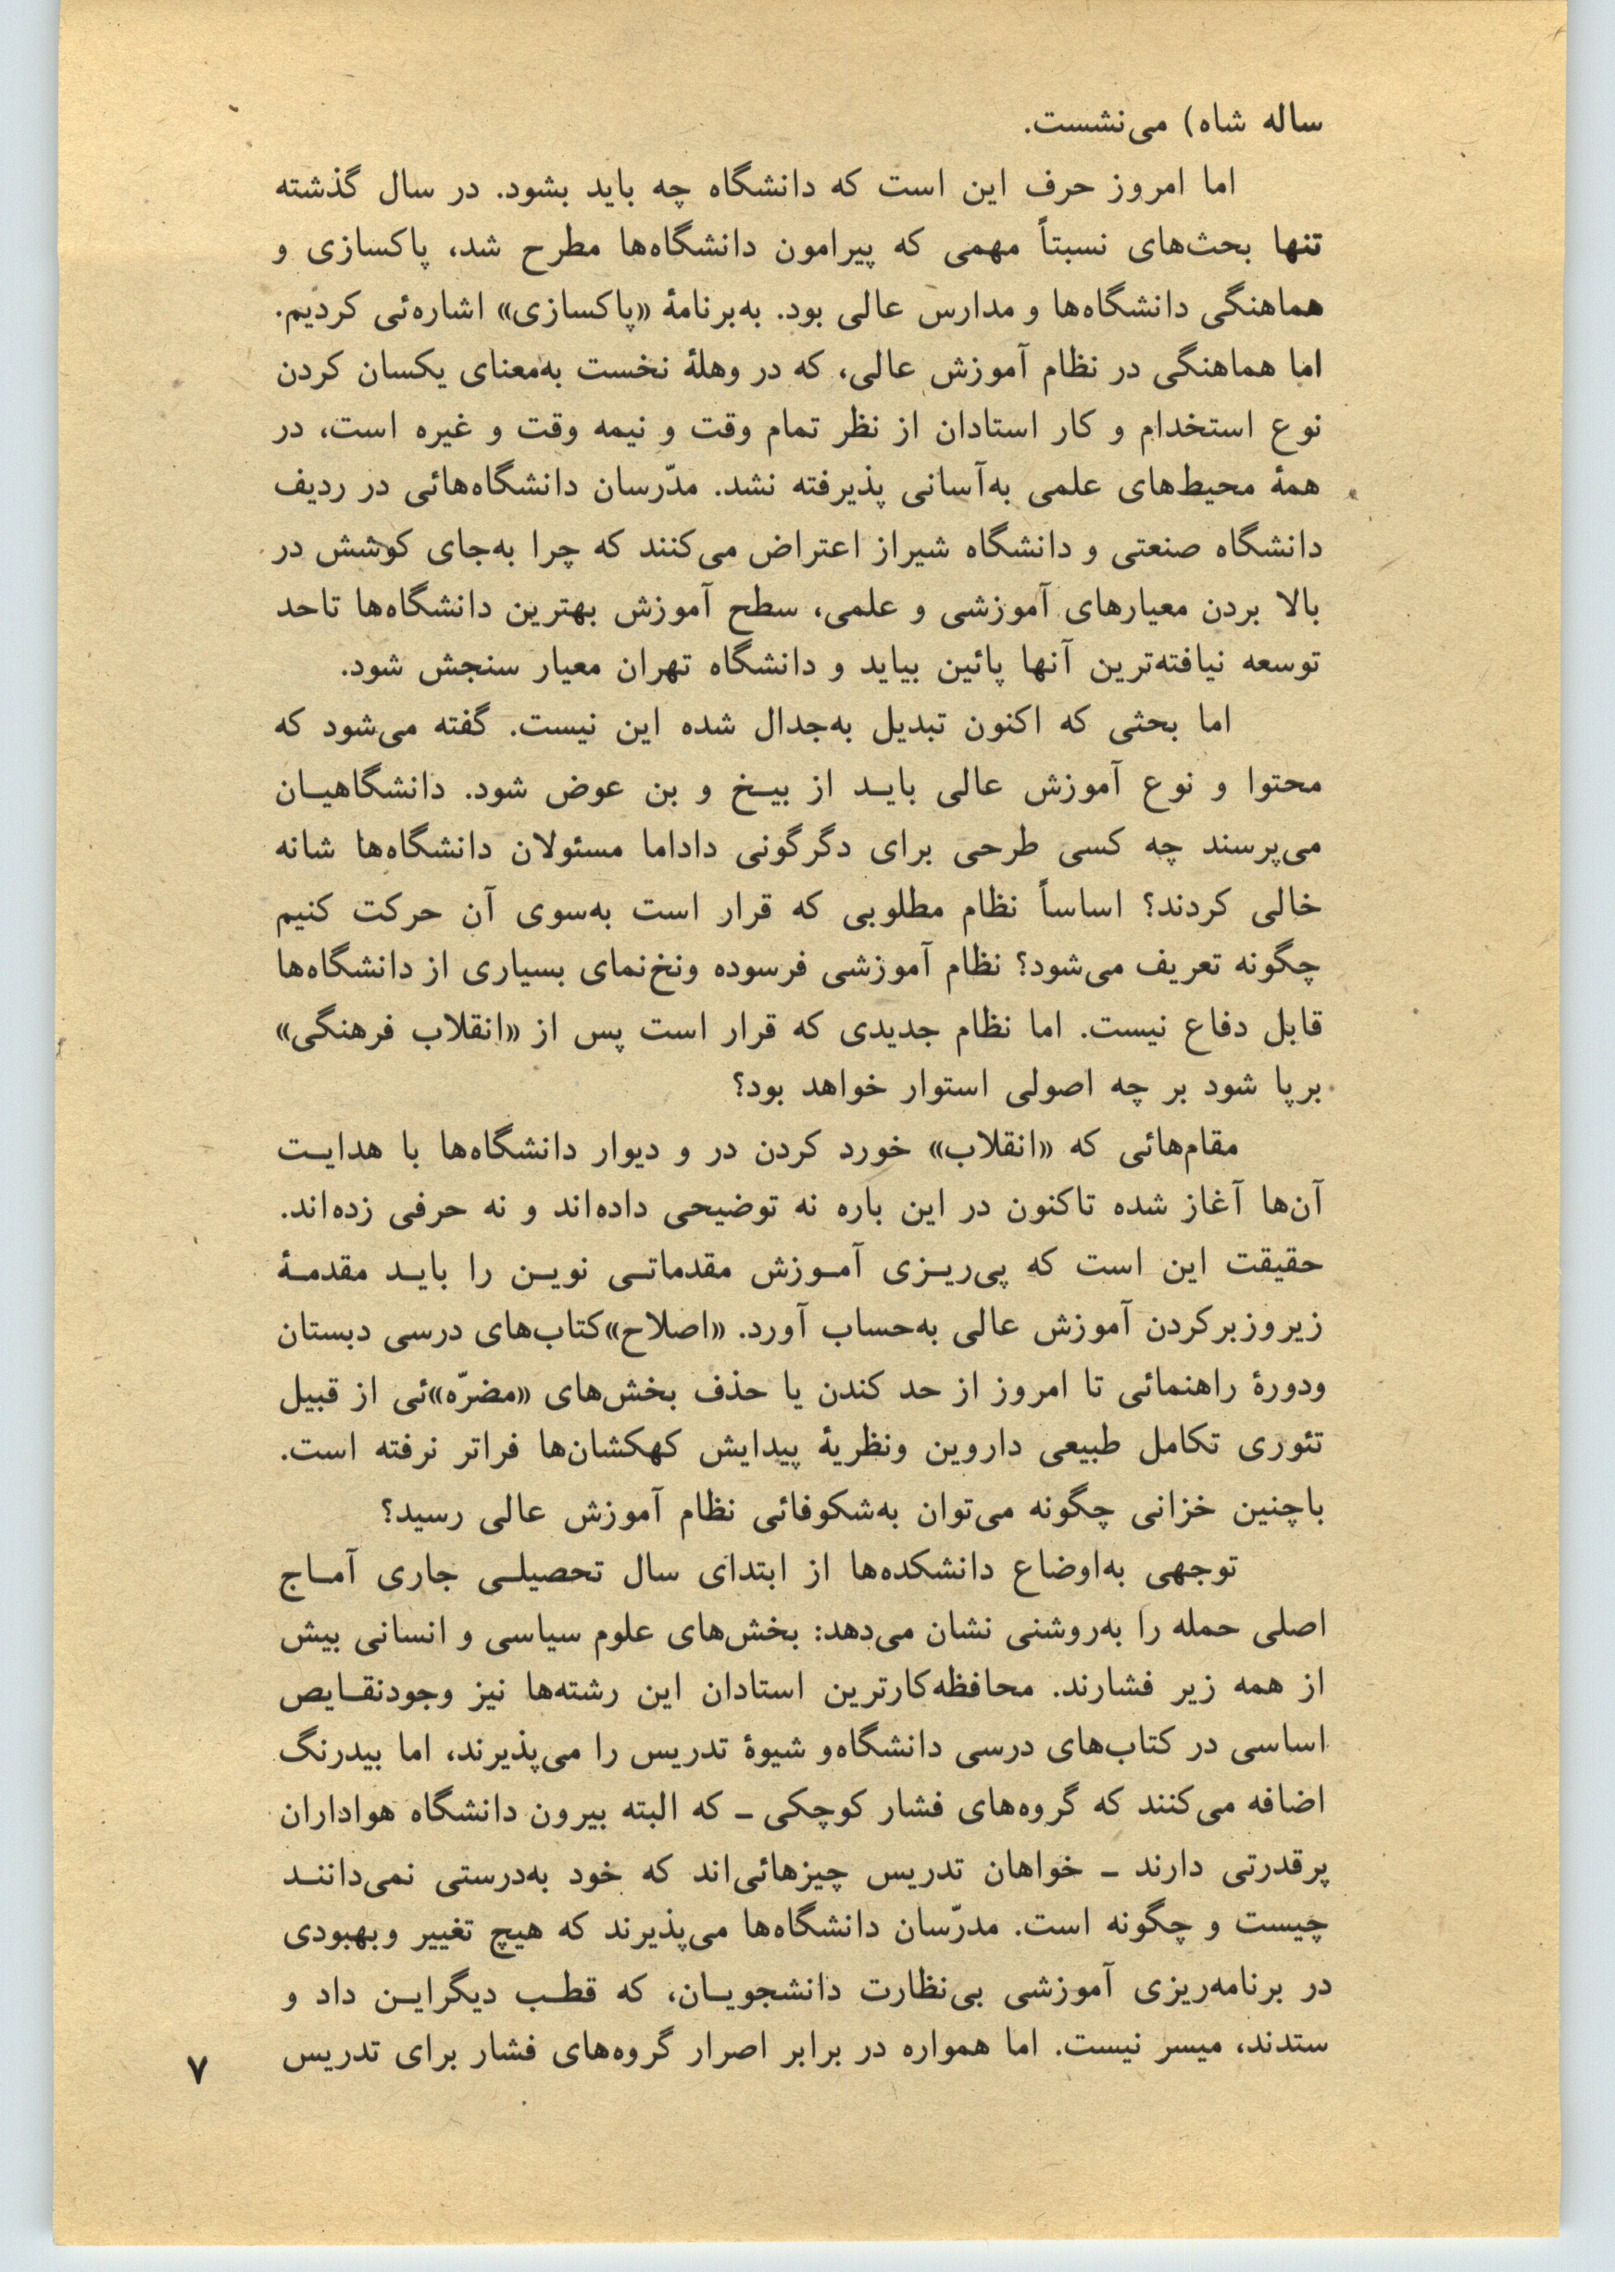 ساله شاه) می‌نشست.
اما امروز حرف این است که دانشگاه چه باید بشود. در سال گذشته
تنها بحث‌های نسبتاً مهمی که پیرامون دانشگاه‌ها مطرح شد، پاکسازی و
هماهنگی دانشگاه‌ها و مدارس عالی بود. به‌برنامهٔ «پاکسازی» اشاره‌ئی کردیم.
اما هماهنگی در نظام آموزش عالی، که در وهلهٔ نخست به‌معنای یکسان کردن
نوع استخدام و کار استادان از نظر تمام وقت و نیمه وقت و غیره است، در
همهٔ محیط‌های علمی به‌آسانی پذیرفته نشد. مدّرسان دانشگاه‌هائی در ردیف
دانشگاه صنعتی و دانشگاه شیراز اعتراض می‌کنند که چرا به‌جای کوشش در
بالا بردن معیارهای آموزشی و علمی، سطح آموزش بهترین دانشگاه‌ها تاحد
توسعه نیافته‌ترین آنها پائین بیاید و دانشگاه تهران معیار سنجش شود.
اما بحثی که اکنون تبدیل به‌جدال شده این نیست. گفته می‌شود که
محتوا و نوع آموزش عالی بایـد از بیـخ و بن عوض شود. دانشگاهیـان
می‌پرسند چه کسی طرحی برای دگرگونی داداما مسئولان دانشگاه‌ها شانه
خالی کردند؟ اساساً نظام مطلوبی که قرار است به‌سوی آن حرکت کنیم
چگونه تعریف می‌شود؟ نظام آموزشی فرسوده ونخ‌نمای بسیاری از دانشگاه‌ها
قابل دفاع نیست. اما نظام جدیدی که قرار است پس از «انقلاب فرهنگی»
برپا شود بر چه اصولی استوار خواهد بود؟
مقام‌هائی که «انقلاب» خورد کردن در و دیوار دانشگاه‌ها با هدایـت
آن‌ها آغاز شده تاکنون در این باره نه توضیحی داده‌اند و نه حرفی زده‌اند.
حقیقت این است که پی‌ریـزی آمـوزش مقدماتـی نویـن را بایـد مقدمـهٔ
زیروزبرکردن آموزش عالی به‌حساب آورد. «اصلاح»کتاب‌های درسی دبستان
ودورهٔ راهنمائی تا امروز از حد کندن یا حذف بخش‌های «مضرّه»ئی از قبیل
تئوری تکامل طبیعی داروین ونظریهٔ پیدایش کهکشان‌ها فراتر نرفته است.
باچنین خزانی چگونه می‌توان به‌شکوفائی نظام آموزش عالی رسید؟
توجهی به‌اوضاع دانشکده‌ها از ابتدای سال تحصیلـی جاری آمـاج
اصلی حمله را به‌روشنی نشان می‌دهد: بخش‌های علوم سیاسی و انسانی بیش
از همه زیر فشارند. محافظه‌کارترین استادان این رشته‌ها نیز وجودنقـایص
اساسی در کتاب‌های درسی دانشگاه‌و شیوهٔ تدریس را می‌پذیرند، اما بیدرنگ
اضافه می‌کنند که گروه‌های فشار کوچکی ـ که البته بیرون دانشگاه هواداران
پرقدرتی دارند ـ خواهان تدریس چیزهائی‌اند که خود به‌درستی نمی‌داننـد
چیست و چگونه است. مدرّسان دانشگاه‌ها می‌پذیرند که هیچ تغییر وبهبودی
در برنامه‌ریزی آموزشی بی‌نظارت دانشجویـان، که قطـب دیگرایـن داد و
ستدند، میسر نیست. اما همواره در برابر اصرار گروه‌های فشار برای تدریس
۷